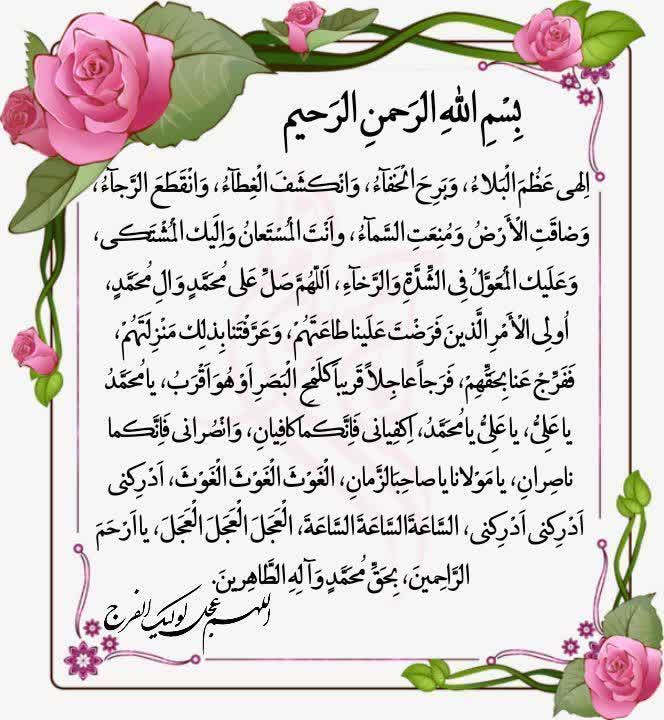 بِسْمِ اللهِ الرَحمنِ الرَحیمِ
اِلهی عَظُمَ الْبَلاءُ، وَبَرِحَ الْخَفآءُ، وَانْکَشَفَ الْغِطآءُ، وَانْقَطَعَ الرَّجآءُ،
وَضاقَتِ الْأَرْضُ وَمُنِعَتِ السَّمآءُ، واَنْتَ الْمُسْتَعانُ وَاِلَیك الْمُشْتَکی،
وَعَلَیك الْمُعَوَّلُ فِی الشِّدَّةِ وَالرَّخآءِ، اَللّهُمَّ صَلِّ عَلی مُحَمَّدٍ وَالِ مُحَمَّدٍ،
اُولِی الْأَمْرِ الَّذینَ فَرَضْتَ عَلَیْنا طاعَتَهُمْ، وَعَرَّفْتَنا بِذلِك مَنْزِلَتَهُمْ،
فَفَرِّجْ عَنا بِحَقِّهِمْ، فَرَجاً عاجِلاً قَریباً کَلَمْحِ الْبَصَرِ اَوْ هُوَ اَقْرَبُ، یا مُحَمَّدُ
یا عَلِیُّ، یا عَلِیُّ یا مُحَمَّدُ، اِکْفِیانی فَاِنَّکُما کافِیانِ، وَانْصُرانی فَاِنَّکُما
ناصِرانِ، یا مَوْلانا یا صاحِبَ الزَّمانِ، الْغَوْثَ الْغَوْثَ الْغَوْثَ، اَدْرِکْنی
اَدْرِکْنی اَدْرِکْنی، السَّاعَةَ السَّاعَةَ السَّاعَةَ، الْعَجَلَ الْعَجَلَ الْعَجَلَ، یا اَرْحَمَ
الرَّاحِمینَ، بِحَقِّ مُحَمَّدٍ وَآلِهِ الطَّاهِرینَ.
اللهم عجل لولیک الفرج